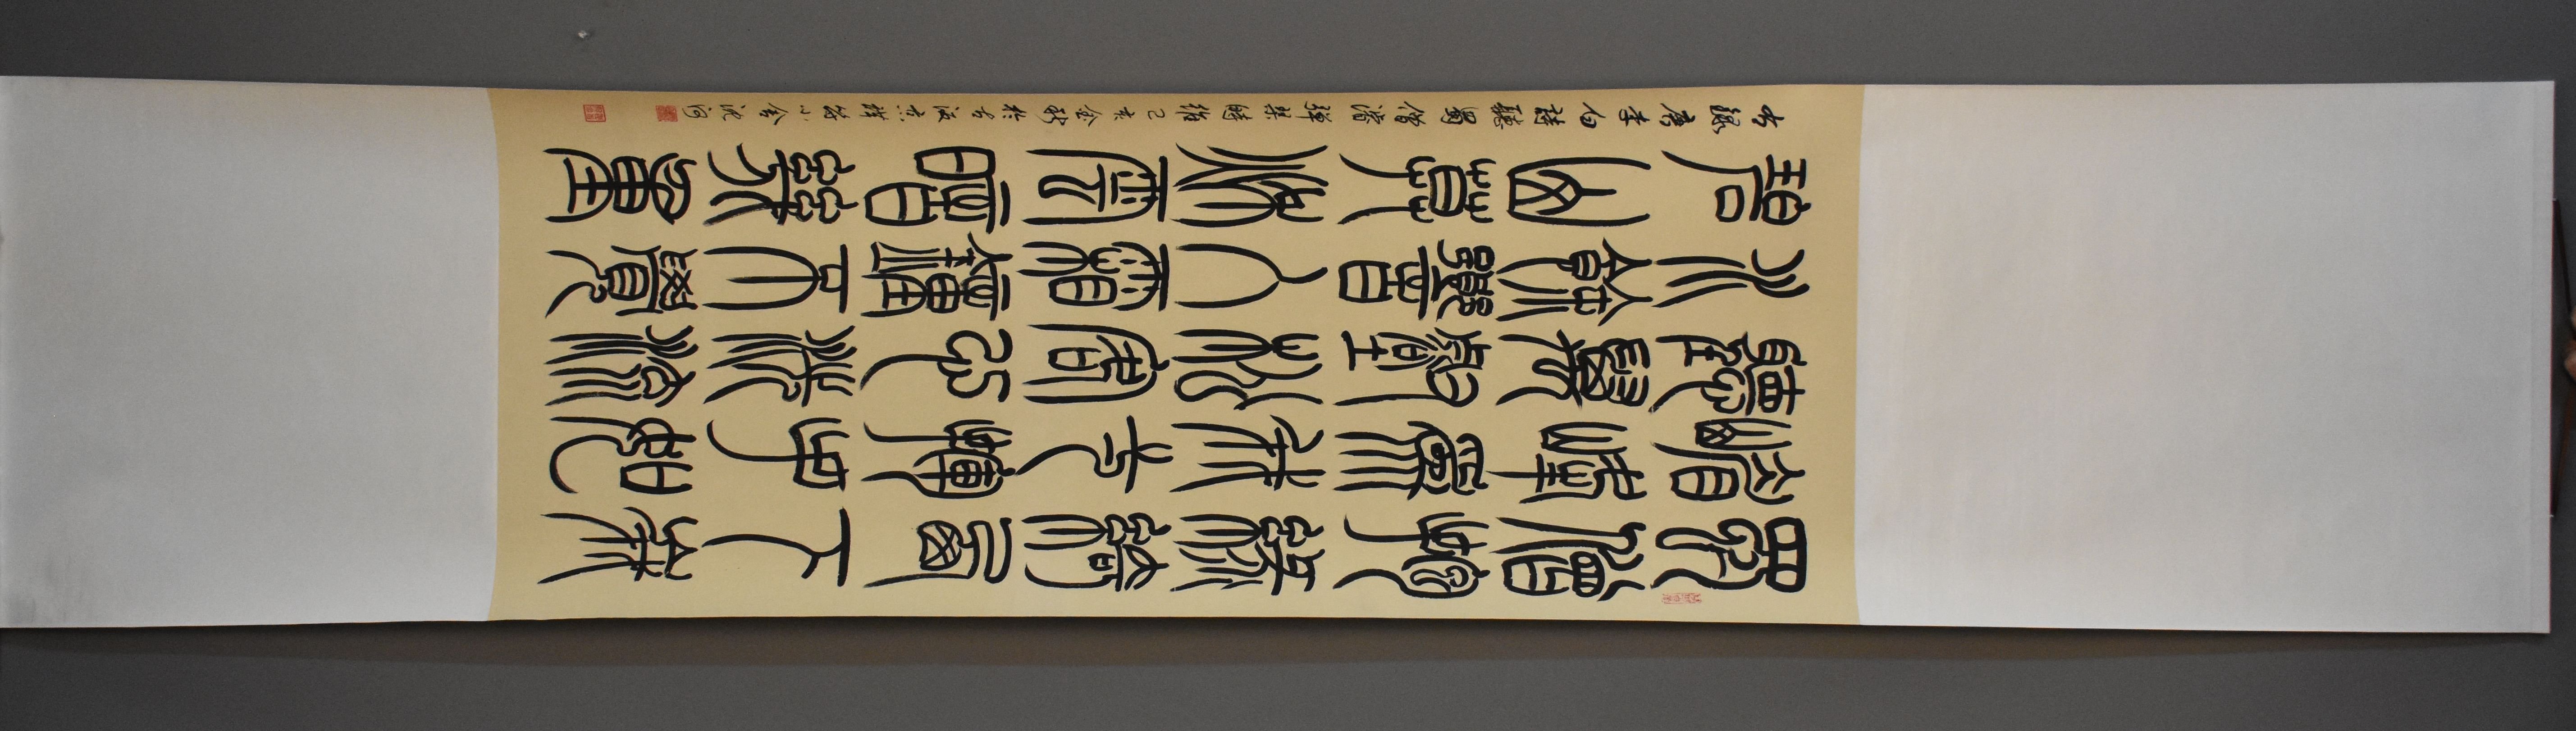 蜀僧抱綠綺西下峨
眉峰為我一揮手如
聽萬壑松客心洗流
水餘響入霜鐘不覺
碧山暮秋雲暗幾重
右錄唐李白詩聽蜀僧濬彈琴時維己金秋於古城小舍